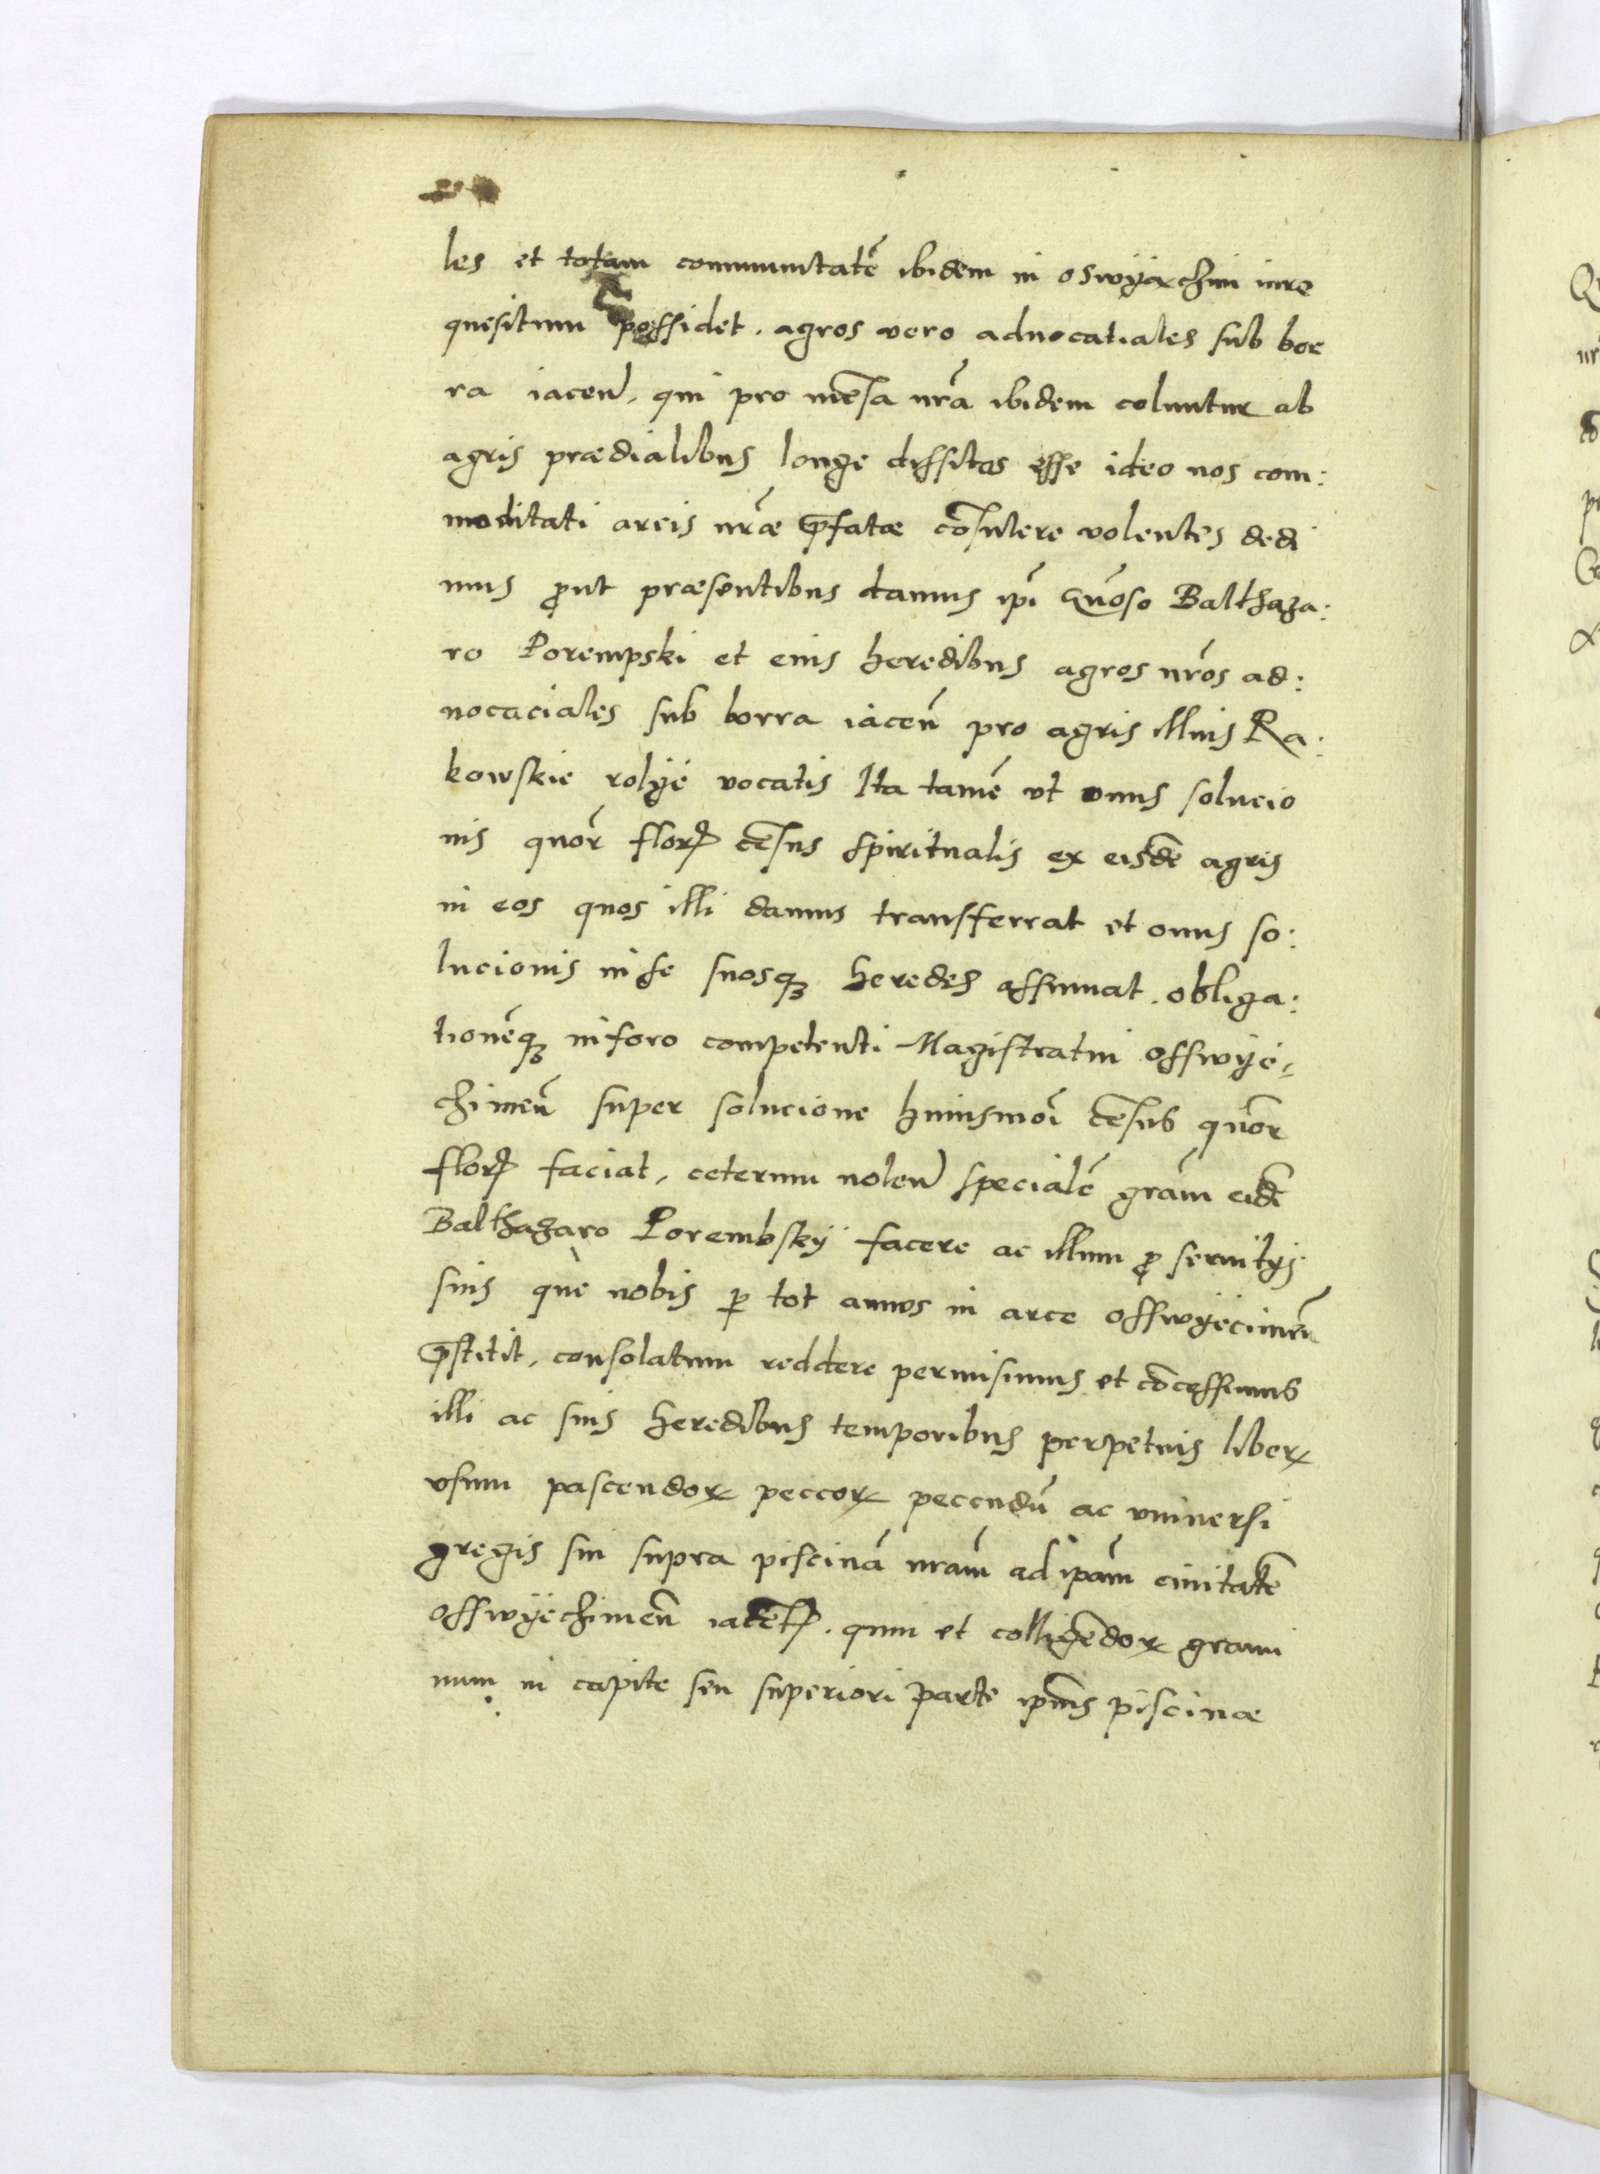 les et totam communitatē ibidem in oswyąchim iure
quesitum possidet . agros vero aduocatiales sub bor
ra iaceñ, qui pro mēsa nrā ibidem coluntur ab
agris prædialibus longe dissitos esse ideo nos com:
moditati arcis nrāe p̄fatæ cōsulere volentes dedi
mus ꝓut præsentibus damus ipī Gnōso Balthaza:
ro Porempski et eius heredibus agros nrōs ad:
uocaciales sub borra iaceñ pro agris illius Ra:
kowskie rolye vocatis Ita tamē vt onus solucio
nis qūor florꝭ cēsus spiritualis ex eisdē agris
in eos quos illi damus transferrat et onus so:
lucionis in se suosqꝫ heredes assumat . obliga:
tionēqꝫ in foro competenti Magistratui osswye:
chimeñ super solucione huiusmōi cēsus qūor
florꝭ faciat, ceterum voleñ specialē grām eidē
Balthazaro Porembsky facere ac illum ꝓ seruitys
suis que nobis ꝑ tot annos in arce osswyecimeñ
p̄stitit, consolatum reddere permisimus et cōcessimus
illi ac suis heredibus temporibus perpetuis liberꝝ
vsum pascendoꝝ peccoꝝ pecendū ac vniuersi
gregis sui supra piscinā nrām ad ipām ciuitatē
osswyechimeñ iacētꝭ . quin et colligēdoꝝ grami
num in capite seu superiori parte ipīus piscinæ